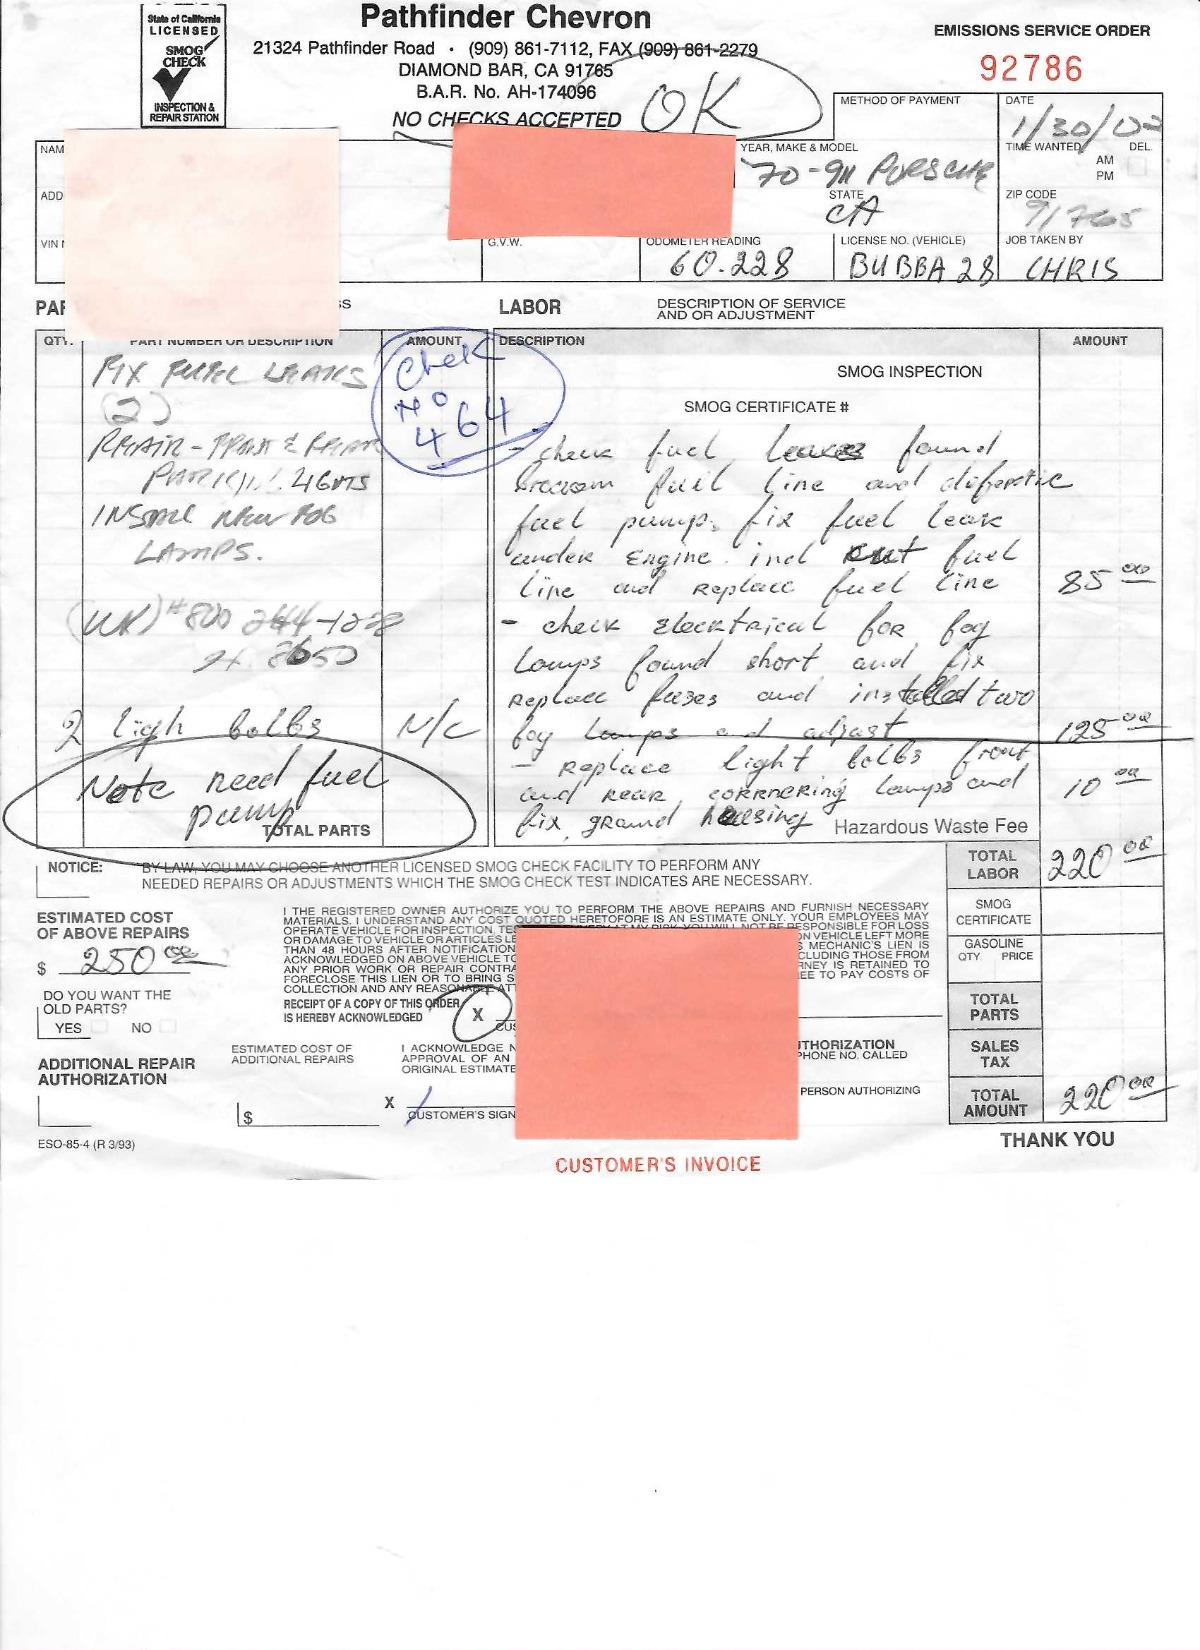 State of California
LICENSED
SMOG
CHECK
INSPECTION &
REPAIR STATION
Pathfinder Chevron
21324 Pathfinder Road • (909) 861-7112, FAX (909) 861-2279
DIAMOND BAR, CA 91765
B.A.R. No. AH-174096
NO CHECKS ACCEPTED
OK
EMISSIONS SERVICE ORDER
92786
METHOD OF PAYMENT
DATE
1/30/02
TIME WANTED
DEL.
AM
PM
NAM
YEAR, MAKE & MODEL
70-911 PORSCHE
ADD
STATE
CA
ZIP CODE
91765
VIN
G.V.W.
ODOMETER READING
60.228
LICENSE NO. (VEHICLE)
BUBBA 28
JOB TAKEN BY
CHRIS
PAR
SS
LABOR
DESCRIPTION OF SERVICE
AND OR ADJUSTMENT
QTY.
PART NUMBER OR DESCRIPTION
AMOUNT
DESCRIPTION
AMOUNT
FIX FUEL LEAKS
(2)
REPAIR - FRONT & REAR
PARKING LIGHTS
INSTALL NEW FOG
LAMPS.
#800 244-1228
2 ligh bolbs N/C
Note need fuel
pump
TOTAL PARTS
Chek
NO
464
SMOG INSPECTION
SMOG CERTIFICATE #
- check fuel leakes found
fuil line and
fuel pump. fix fuel leak
under Engine. incl cut fuel
line and Replace fuel line 85 00
- check Electrical for fog
lamps found short and fix
Replace fuses and installed two
fog lamps and adjust 125 00
- Replace light bolbs front
and Rear cornering lamps and 10 00
fix ground housing
Hazardous Waste Fee
NOTICE: BY LAW, YOU MAY CHOOSE ANOTHER LICENSED SMOG CHECK FACILITY TO PERFORM ANY
NEEDED REPAIRS OR ADJUSTMENTS WHICH THE SMOG CHECK TEST INDICATES ARE NECESSARY.
TOTAL
LABOR
220 00
ESTIMATED COST
OF ABOVE REPAIRS
$ 250 00
DO YOU WANT THE
OLD PARTS?
YES NO
I THE REGISTERED OWNER AUTHORIZE YOU TO PERFORM THE ABOVE REPAIRS AND FURNISH NECESSARY
MATERIALS. I UNDERSTAND ANY COST QUOTED HERETOFORE IS AN ESTIMATE ONLY. YOUR EMPLOYEES MAY
OPERATE VEHICLE FOR INSPECTION, TES RESPONSIBLE FOR LOSS
OR DAMAGE TO VEHICLE OR ARTICLES LE ON VEHICLE LEFT MORE
THAN 48 HOURS AFTER NOTIFICATION S MECHANIC'S LIEN IS
ACKNOWLEDGED ON ABOVE VEHICLE TO CLUDING THOSE FROM
ANY PRIOR WORK OR REPAIR CONTRA RNEY IS RETAINED TO
FORECLOSE THIS LIEN OR TO BRING S EE TO PAY COSTS OF
COLLECTION AND ANY REASONABLE ATT
RECEIPT OF A COPY OF THIS ORDER
IS HEREBY ACKNOWLEDGED
X
CUS
SMOG
CERTIFICATE
GASOLINE
QTY. PRICE
TOTAL
PARTS
SALES
TAX
TOTAL
AMOUNT
220 00
ADDITIONAL REPAIR
AUTHORIZATION
ESTIMATED COST OF
ADDITIONAL REPAIRS
$
I ACKNOWLEDGE N
APPROVAL OF AN
ORIGINAL ESTIMATE
X
CUSTOMER'S SIGN
THORIZATION
PHONE NO. CALLED
PERSON AUTHORIZING
ESO-85-4 (R 3/93)
THANK YOU
CUSTOMER'S INVOICE